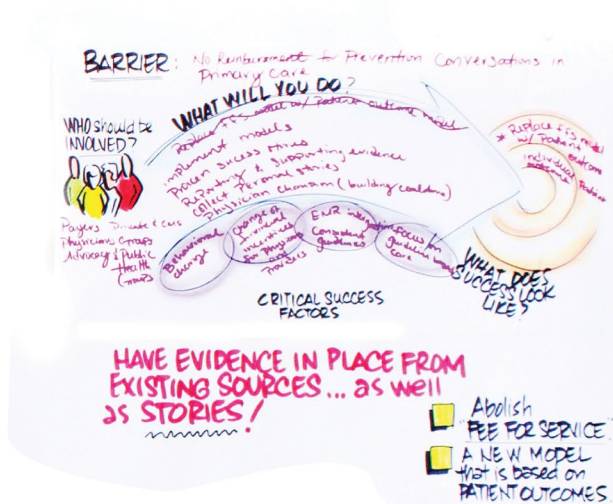 BARRIER: No Reimbursement for Prevention Conversations in
Primary Care
WHAT WILL YOU DO?
WHO should be
INVOLVED?
Payers Private & Gov
Physicians Groups
Advocacy & Public
Health
Groups
Replace FFS model w/ Patient outcome model
implement models
Proven success
Reporting & supporting evidence
collect Personal stories
Physician champion (building coalition)
Behavioral
change
change of
incentives
for physicians
and
Providers
EMR
guidelines
Focus on
guidelines
care
CRITICAL SUCCESS
FACTORS
* Replace FFS model
w/ Patient
outcome
individual
Patient
WHAT DOES
SUCCESS LOOK
LIKE?
HAVE EVIDENCE IN PLACE FROM
EXISTING SOURCES... as well
as STORIES!
Abolish
"FEE FOR SERVICE"
A NEW MODEL
that is based on
PATIENT OUTCOMES